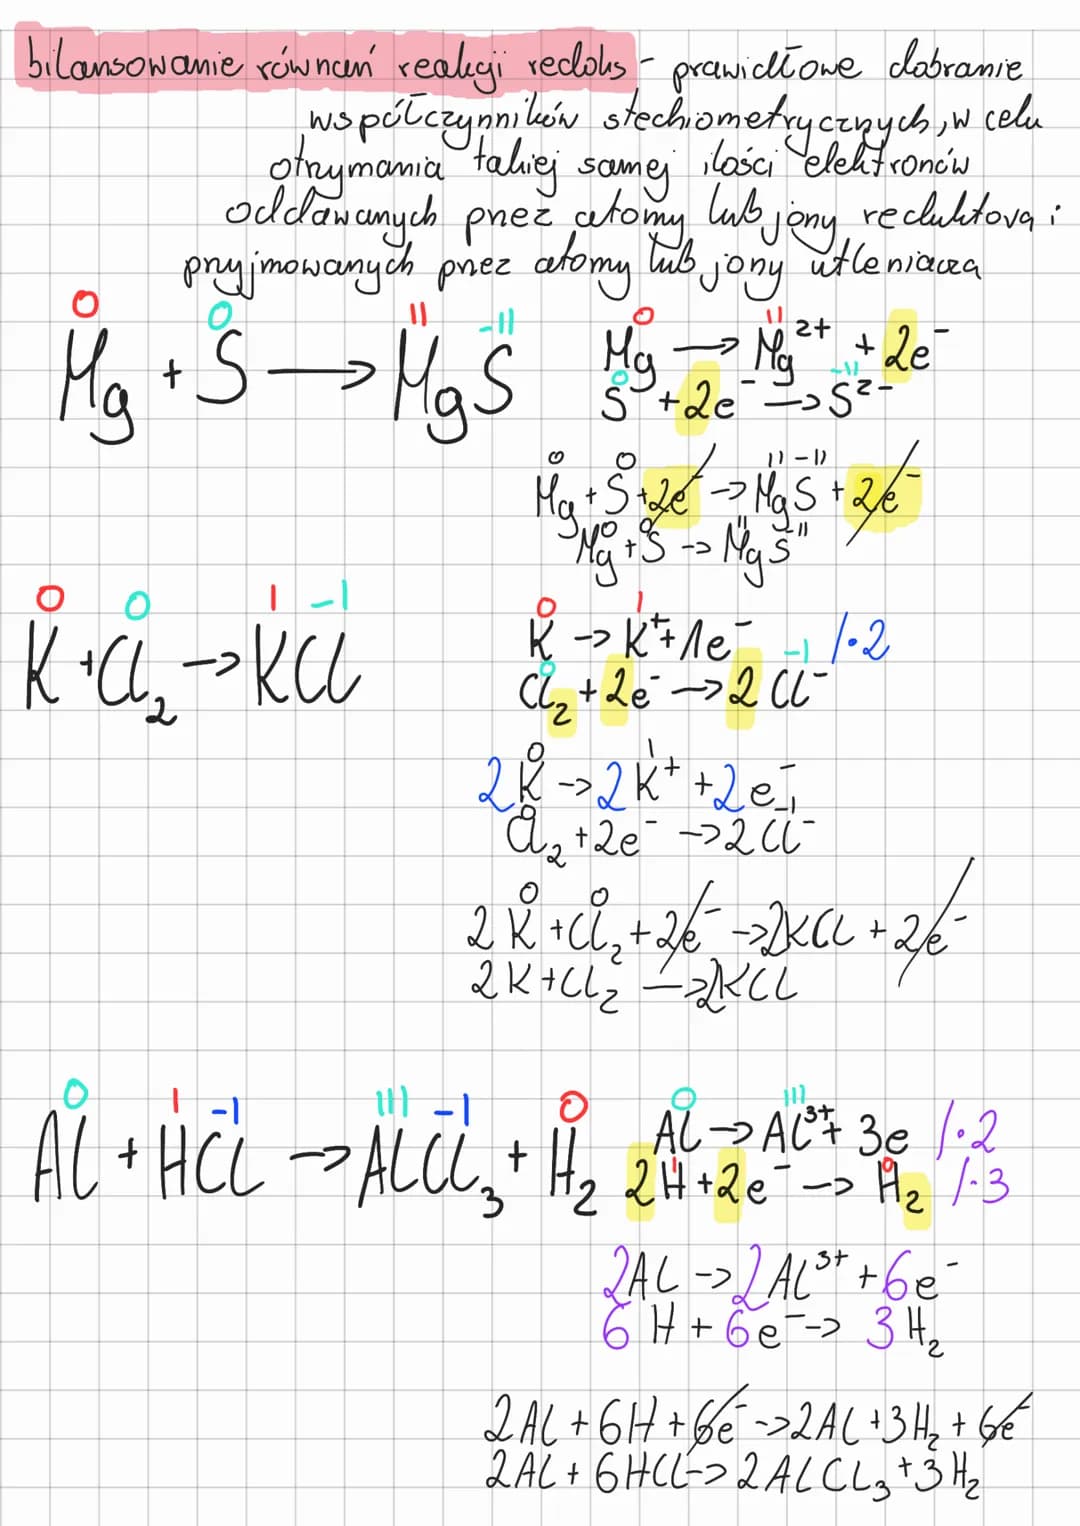 bilansowanie równań reakcji redoks - prawidłowe dobranie
współczynników stechiometrycznych, w celu
otrzymania takiej samej ilości elektronów
oddawanych przez atomy lub jony reduktora i
przyjmowanych przez atomy lub jony utleniacza
0 0 II -II
Mg + S → MgS
0 II
Mg → Mg²⁺ + 2e⁻
0 -II
S + 2e⁻ → S²⁻
0 0 II -II
Mg + S + 2e⁻ → MgS + 2e⁻
0 0 II -II
Mg + S → MgS
0 0 I -I
K + Cl₂ → KCl
0 I
K → K⁺ + 1e⁻ /·2
0 -I
Cl₂ + 2e⁻ → 2Cl⁻
0 I
2K → 2K⁺ + 2e⁻
0 -I
Cl₂ + 2e⁻ → 2Cl⁻
0 0
2K + Cl₂ + 2e⁻ → 2KCl + 2e⁻
2K + Cl₂ → 2KCl
0 I -I III -I 0
Al + HCl → AlCl₃ + H₂
0 III
Al → Al³⁺ + 3e /·2
I 0
2H + 2e⁻ → H₂ /·3
2Al → 2Al³⁺ + 6e⁻
6H + 6e⁻ → 3H₂
2Al + 6H + 6e⁻ → 2Al + 3H₂ + 6e⁻
2Al + 6HCl → 2AlCl₃ + 3H₂